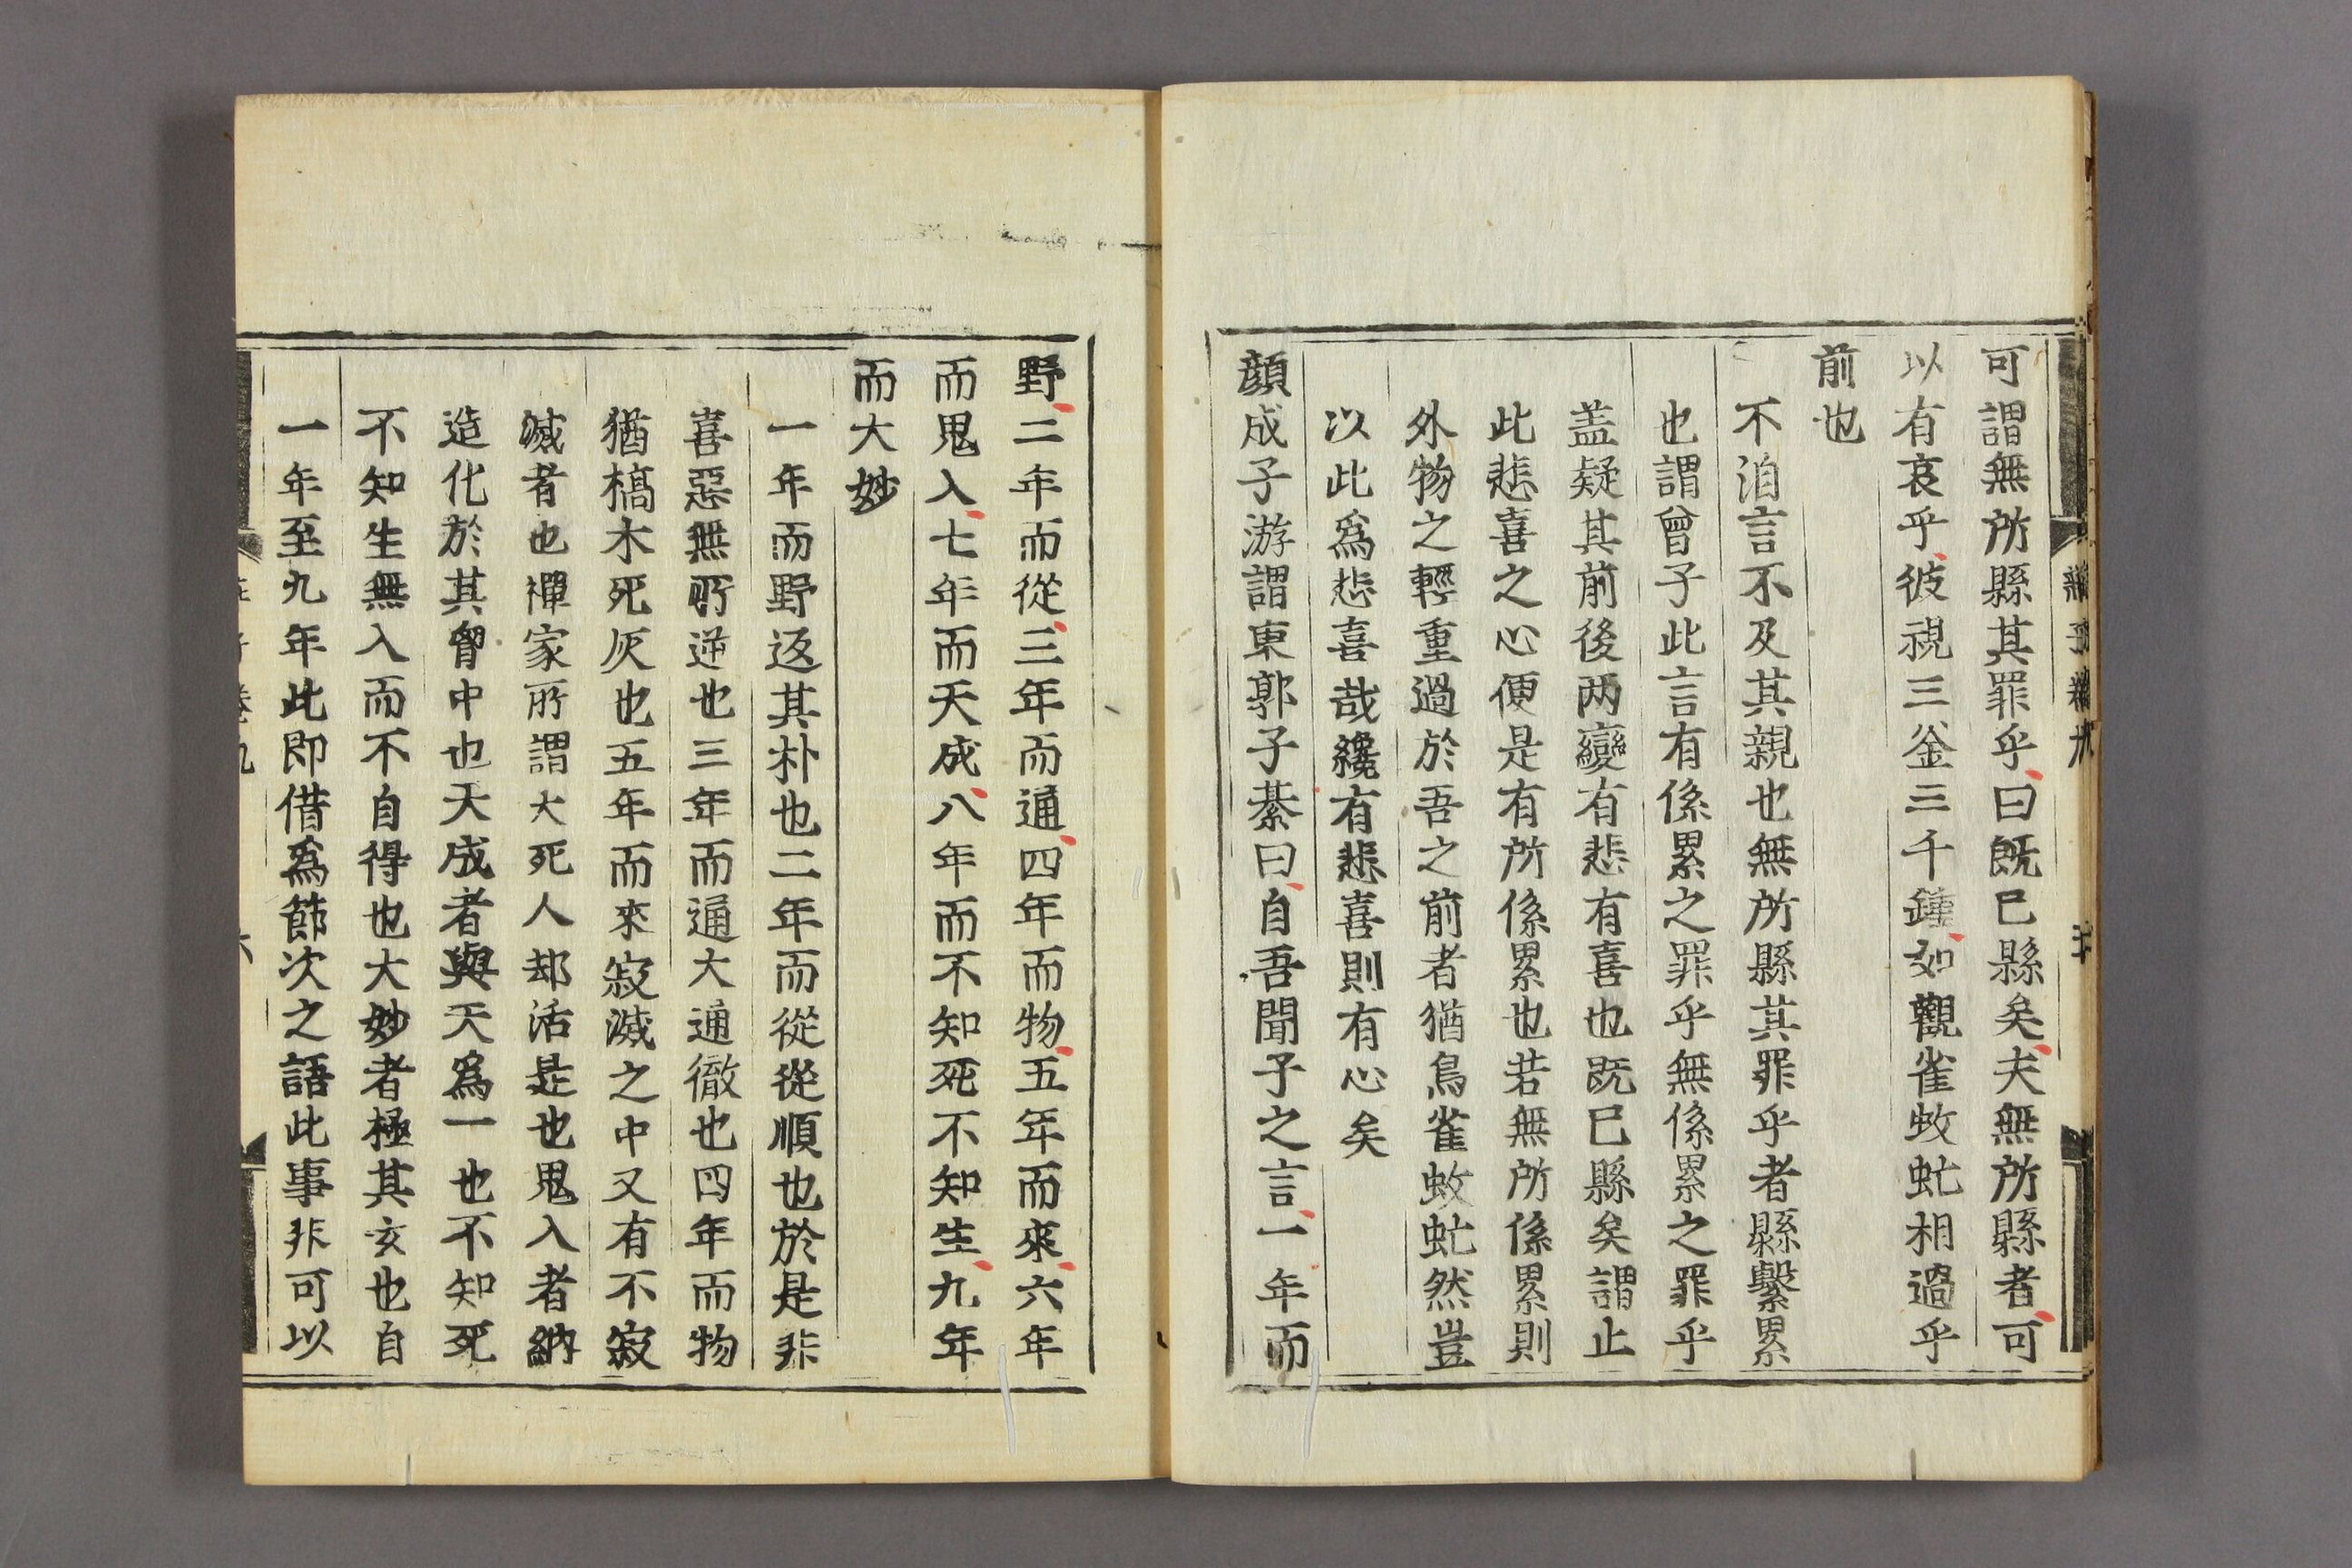 可謂無所縣其罪乎曰既已縣矣夫無所縣者可
以有哀乎彼視三釜三千鍾如觀雀蚊虻相過乎
前也
不洎言不及其親也無所縣其罪乎者縣繫累
也謂曾子此言有係累之罪乎無係累之罪乎
盖疑其前後两變有悲有喜也既已縣矣謂止
此悲喜之心便是有所係累也若無所係累則
外物之輕重過於吾之前者猶鳥雀蚊虻然豈
以此爲悲喜哉纔有悲喜則有心矣
顔成子游謂東郭子綦曰自吾聞子之言一年而
野二年而從三年而通四年而物五年而來六年
而鬼入七年而天成八年而不知死不知生九年
而大妙
一年而野返其朴也二年而從從順也於是非
喜惡無所逆也三年而通大通徹也四年而物
猶槁木死灰也五年而來寂滅之中又有不寂
滅者也禪家所謂大死人却活是也鬼入者納
造化於其胷中也天成者與天爲一也不知死
不知生無入而不自得也大妙者極其玄也自
一年至九年此即借爲節次之語此事非可以